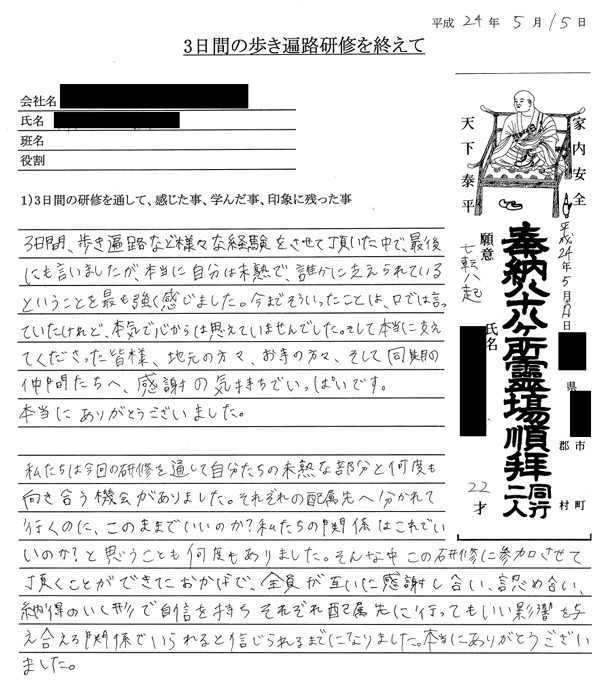 平成 24 年 5 月 15 日
3日間の歩き遍路研修を終えて
会社名
氏名
班名
役割
1)3日間の研修を通して、感じた事、学んだ事、印象に残った事
3日間、歩き遍路など様々な経験をさせて頂いた中で、最後
にも言いましたが、本当に自分は未熟で、誰かに支えられている
ということを最も強く感じました。今までそういったことは、口では言っ
ていたけれど、本気で心からは思えていませんでした。そして本当に支え
てくださった皆様、地元の方々、お寺の方々、そして同期の
仲間たちへ、感謝の気持ちでいっぱいです。
本当にありがとうございました。
私たちは今回の研修を通して自分たちの未熟な部分と何度も
向き合う機会がありました。それぞれの配属先へ分かれて
行くのに、このままでいいのか?私たちの関係はこれでい
いのか?と思うことも何度もありました。そんな中この研修に参加させて
頂くことができたおかげで、全員が互いに感謝し合い、認め合い、
納得のいく形で自信を持ちそれぞれ配属先に行ってもいい影響を与
え合える関係でいられると信じられるまでになりました。本当にありがとうござい
ました。
家内安全
天下泰平
平成24年5月 日
奉納八十八ヶ所霊場順拝
同行二人
願意
七転八起
氏名
22才
県
市
郡
町
村